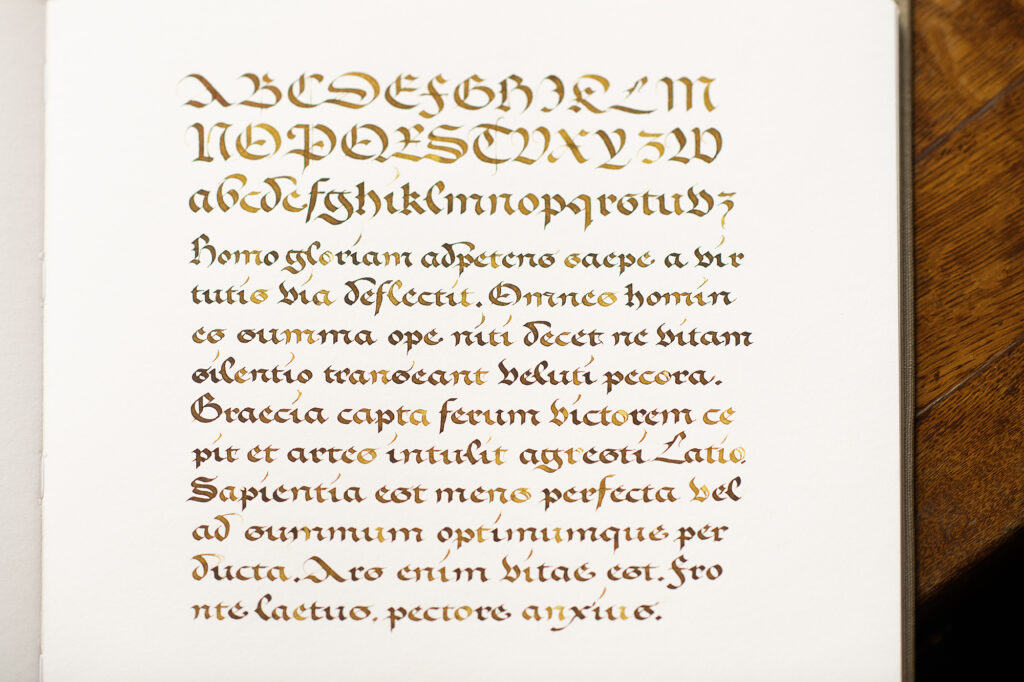 ABCDEFGHIKLM
NOPQRSTVXYZW
abcdefghiklmnopqrstuvz
Homo gloriam adpetens saepe a vir
tutis via deflectit. Omnes homin
es summa ope niti decet ne vitam
silentio transeant veluti pecora.
Graecia capta ferum victorem ce
pit et artes intulit agresti Latio.
Sapientia est mens perfecta vel
ad summum optimumque per
ducta. Ars enim vitae est. Fro
nte laetus, pectore anxius.